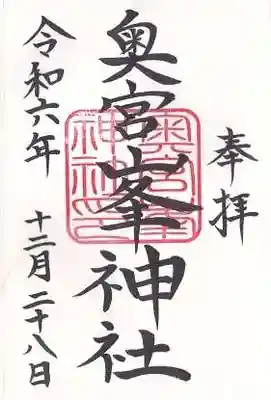 奉拝
奥宮峯神社
奥宮峯
神社印
令和六年
十二月二十八日